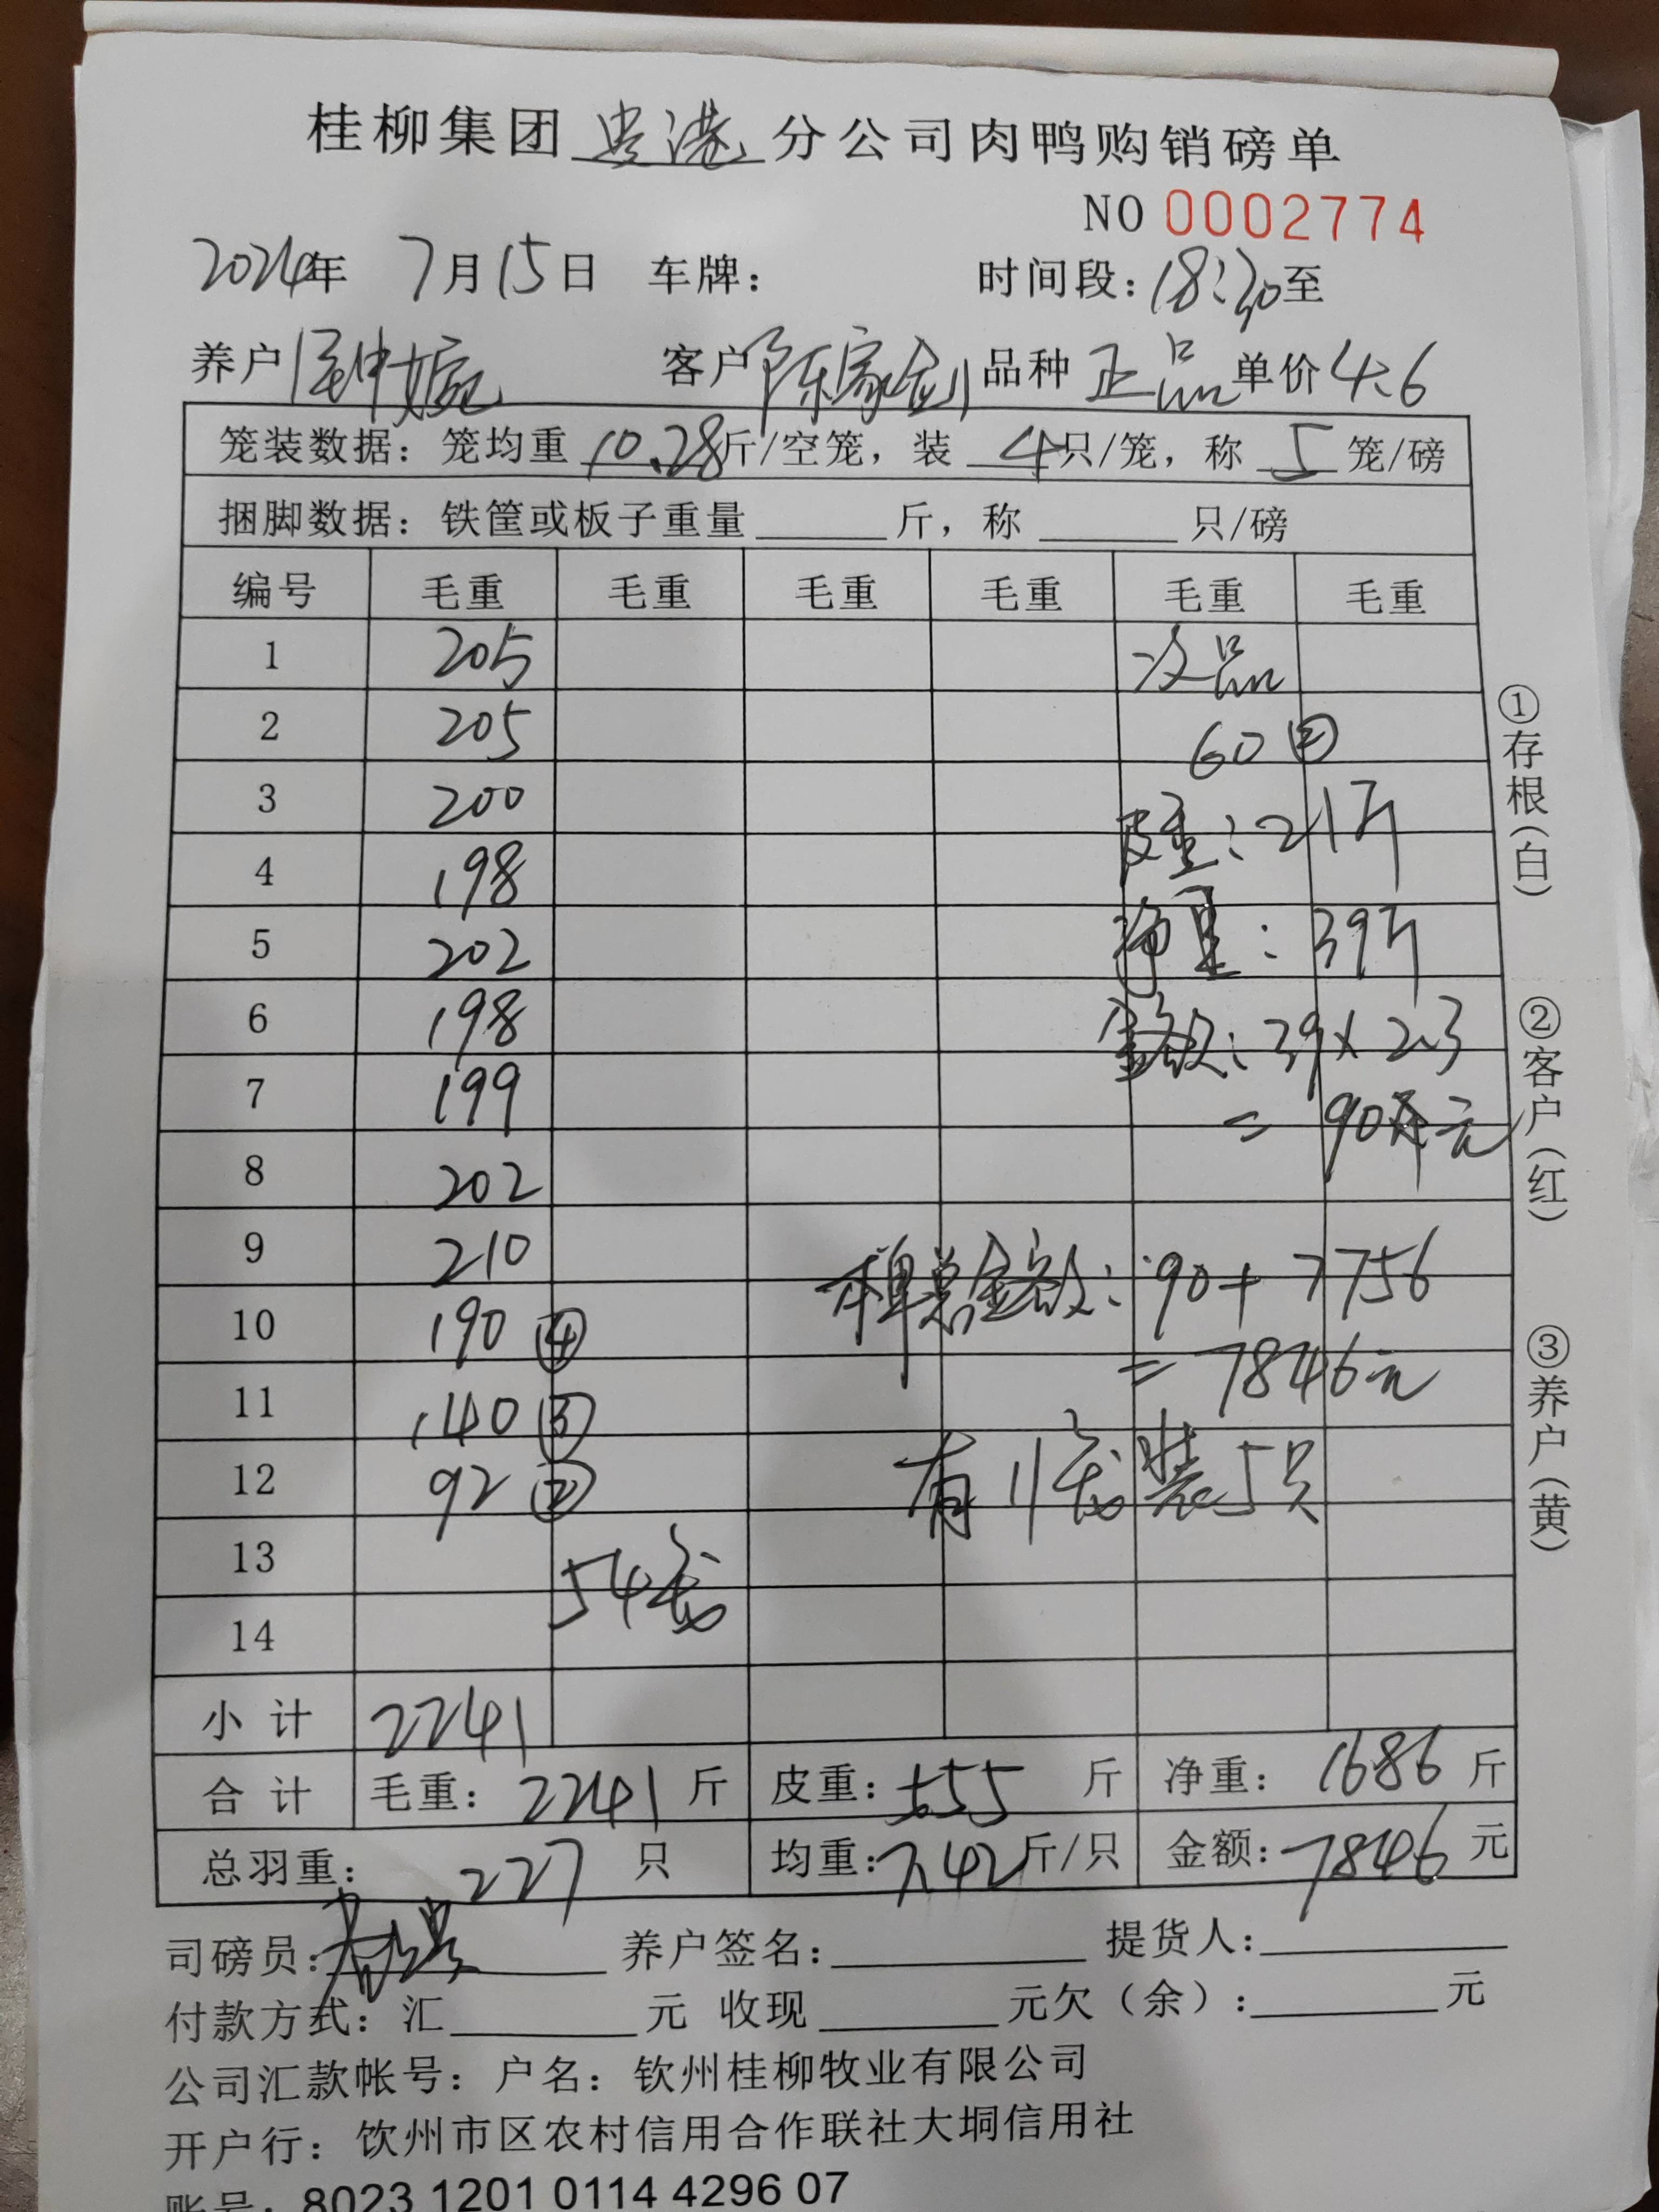 桂柳集团贵港分公司肉鸭购销磅单
NO 0002774
2024年 7月15日 车牌： 时间段：18:30至
养户 客户 陈家剑 品种 正品 单价 4.6
笼装数据：笼均重 10.28斤/空笼，装 4只/笼，称 5 笼/磅
捆脚数据：铁筐或板子重量______斤，称______只/磅
编号 毛重 毛重 毛重 毛重 毛重 毛重
1 205 次品
2 205 60 ②
3 200 皮重：21斤
4 198
5 202 净重：39斤
6 198 金额：39×2.3
7 199 = 90元
8 202
9 210 本单总金额：90+7756
10 190 ④ = 7846元
11 140 ③
12 92 ② 有11笼装5只
13 54笼
14
小计 2241
合计 毛重：2241斤 皮重：555 斤 净重：1686斤
总羽重：227 只 均重：7.42斤/只 金额：7846元
司磅员： 养户签名：______ 提货人：______
付款方式：汇______元 收现______元欠（余）：______元
公司汇款帐号：户名：钦州桂柳牧业有限公司
开户行：钦州市区农村信用合作联社大垌信用社
账号：8023 1201 0114 4296 07
①存根（白）
②客户（红）
③养户（黄）